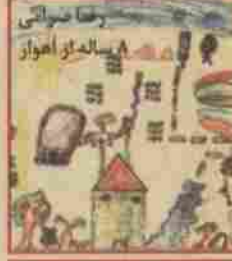 رضا ضرابی
۸ ساله از اهواز